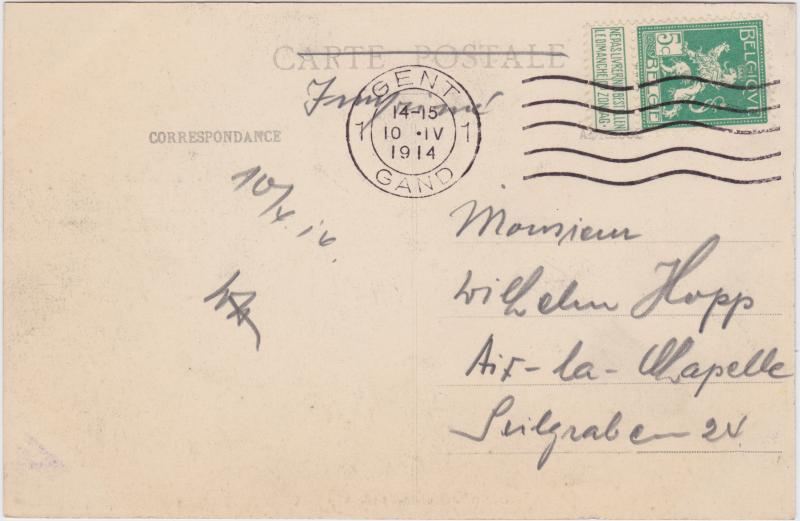 CARTE POSTALE
Imprimé
CORRESPONDANCE
ADRESSE
GENT
1 14-15 1
10 ·IV
1914
GAND
BELGIQUE
5c
BELGIË
NE PAS LIVRER
LE DIMANCHE
NIET BESTELLEN
OP ZONDAG.
Monsieur
Wilhelm Hopp
Aix-la-Chapelle
Seilgraben 24